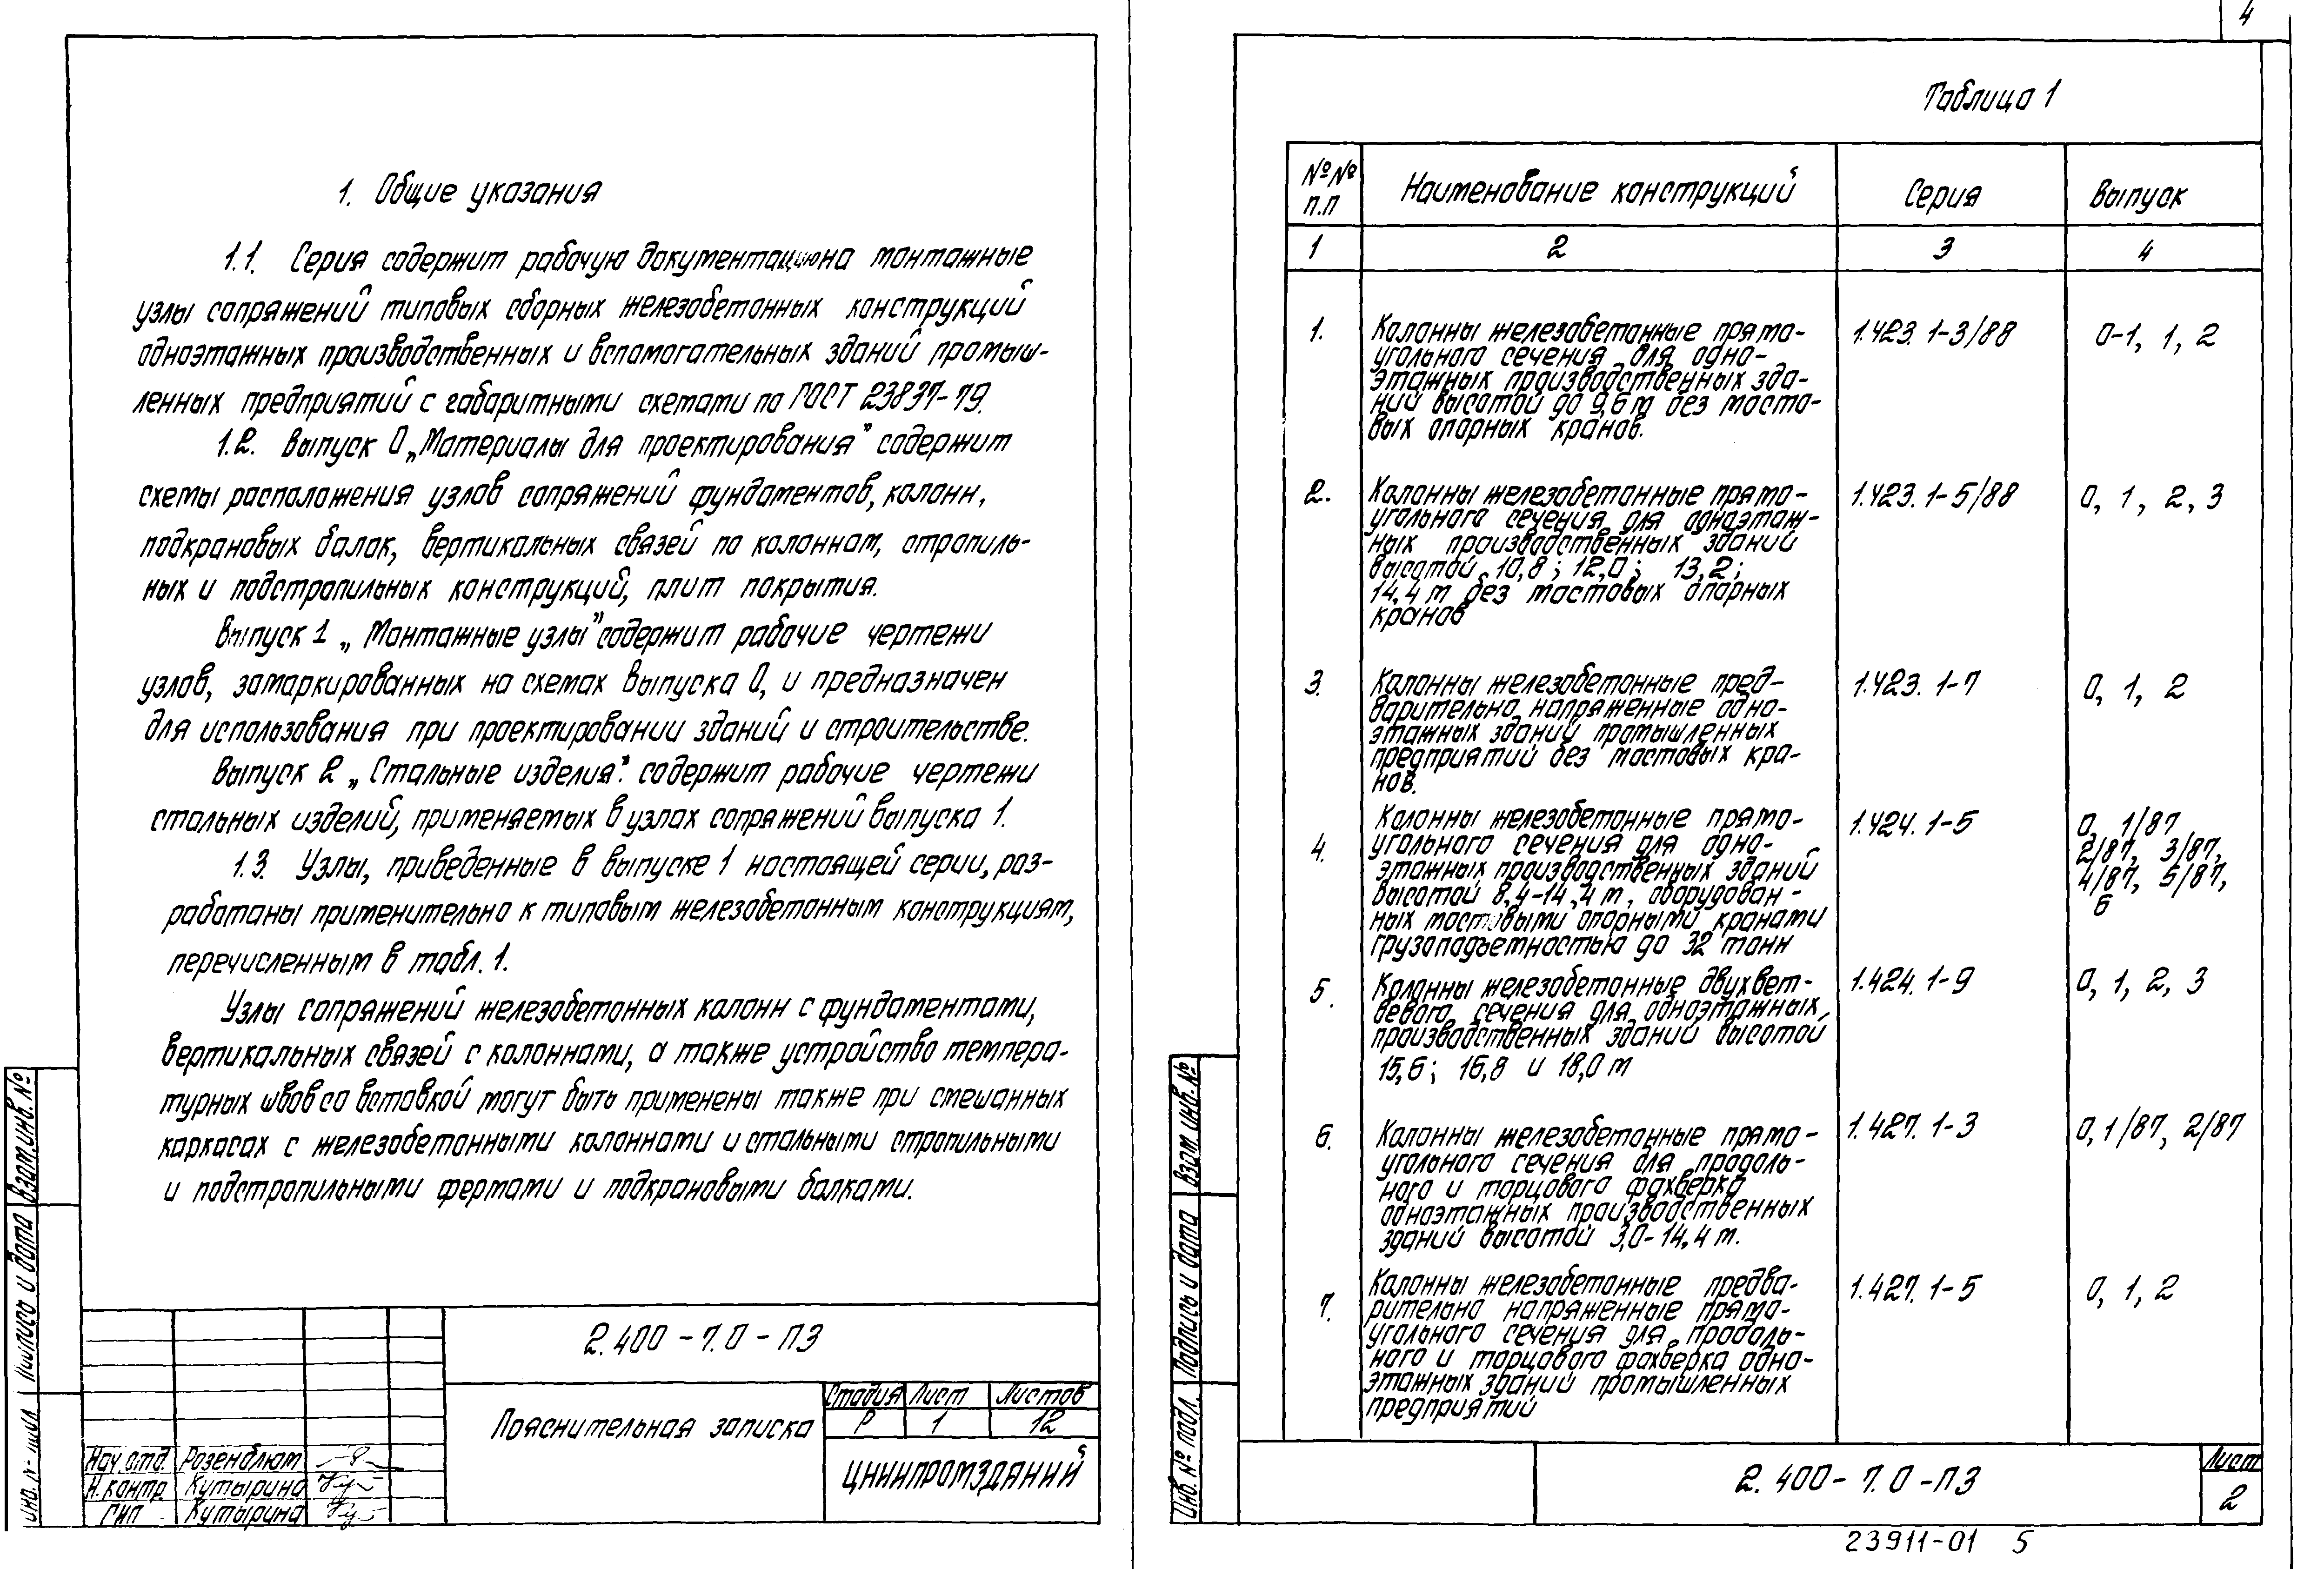 1. Общие указания
1.1. Серия содержит рабочую документацию на монтажные
узлы сопряжений типовых сборных железобетонных конструкций
одноэтажных производственных и вспомогательных зданий промыш-
ленных предприятий с габаритными схемами по ГОСТ 23837-79.
1.2. Выпуск 0 „Материалы для проектирования" содержит
схемы расположения узлов сопряжений фундаментов, колонн,
подкрановых балок, вертикальных связей по колоннам, стропиль-
ных и подстропильных конструкций, плит покрытия.
Выпуск 1 „Монтажные узлы" содержит рабочие чертежи
узлов, замаркированных на схемах Выпуска 0, и предназначен
для использования при проектировании зданий и строительстве.
Выпуск 2 „Стальные изделия". содержит рабочие чертежи
стальных изделий, применяемых в узлах сопряжений выпуска 1.
1.3. Узлы, приведенные в выпуске 1 настоящей серии, раз-
работаны применительно к типовым железобетонным конструкциям,
перечисленным в табл. 1.
Узлы сопряжений железобетонных колонн с фундаментами,
вертикальных связей с колоннами, а также устройство темпера-
турных швов со вставкой могут быть применены также при смешанных
каркасах с железобетонными колоннами и стальными стропильными
и подстропильными фермами и подкрановыми балками.
2.400-7.0-ПЗ
Пояснительная записка
Стадия Лист Листов
Р 1 12
ЦНИИПРОМЗДАНИЙ
Нач.отд. Розенблюм
Н.контр. Кутырина
ГИП Кутырина
Взам.инв.№
Подпись и дата
Инв.№ подл.
4
Таблица 1
№№ п.п Наименование конструкций Серия Выпуск
1 2 3 4
1. Колонны железобетонные прямо- 1.423.1-3/88 0-1, 1, 2
угольного сечения для одно-
этажных производственных зда-
ний высотой до 9,6 м без мосто-
вых опорных кранов.
2. Колонны железобетонные прямо- 1.423.1-5/88 0, 1, 2, 3
угольного сечения для одноэтаж-
ных производственных зданий
высотой 10,8; 12,0; 13,2;
14,4 м без мостовых опорных
кранов
3. Колонны железобетонные пред- 1.423.1-7 0, 1, 2
варительно напряженные одно-
этажных зданий промышленных
предприятий без мостовых кра-
нов.
4. Колонны железобетонные прямо- 1.424.1-5 0, 1/87
угольного сечения для одно- 2/87, 3/87,
этажных производственных зданий 4/87, 5/87,
высотой 8,4-14,4 м, оборудован- 6
ных мостовыми опорными кранами
грузоподъемностью до 32 тонн
5. Колонны железобетонные двухвет- 1.424.1-9 0, 1, 2, 3
вевого сечения для одноэтажных
производственных зданий высотой
15,6; 16,8 и 18,0 м
6. Колонны железобетонные прямо- 1.427.1-3 0, 1/87, 2/87
угольного сечения для продоль-
ного и торцового фахверка
одноэтажных производственных
зданий высотой 3,0-14,4 м.
7. Колонны железобетонные предва- 1.427.1-5 0, 1, 2
рительно напряженные прямо-
угольного сечения для продоль-
ного и торцового фахверка одно-
этажных зданий промышленных
предприятий
Взам.инв.№
Подпись и дата
Инв.№ подл.
2.400-7.0-ПЗ
Лист
2
23911-01 5